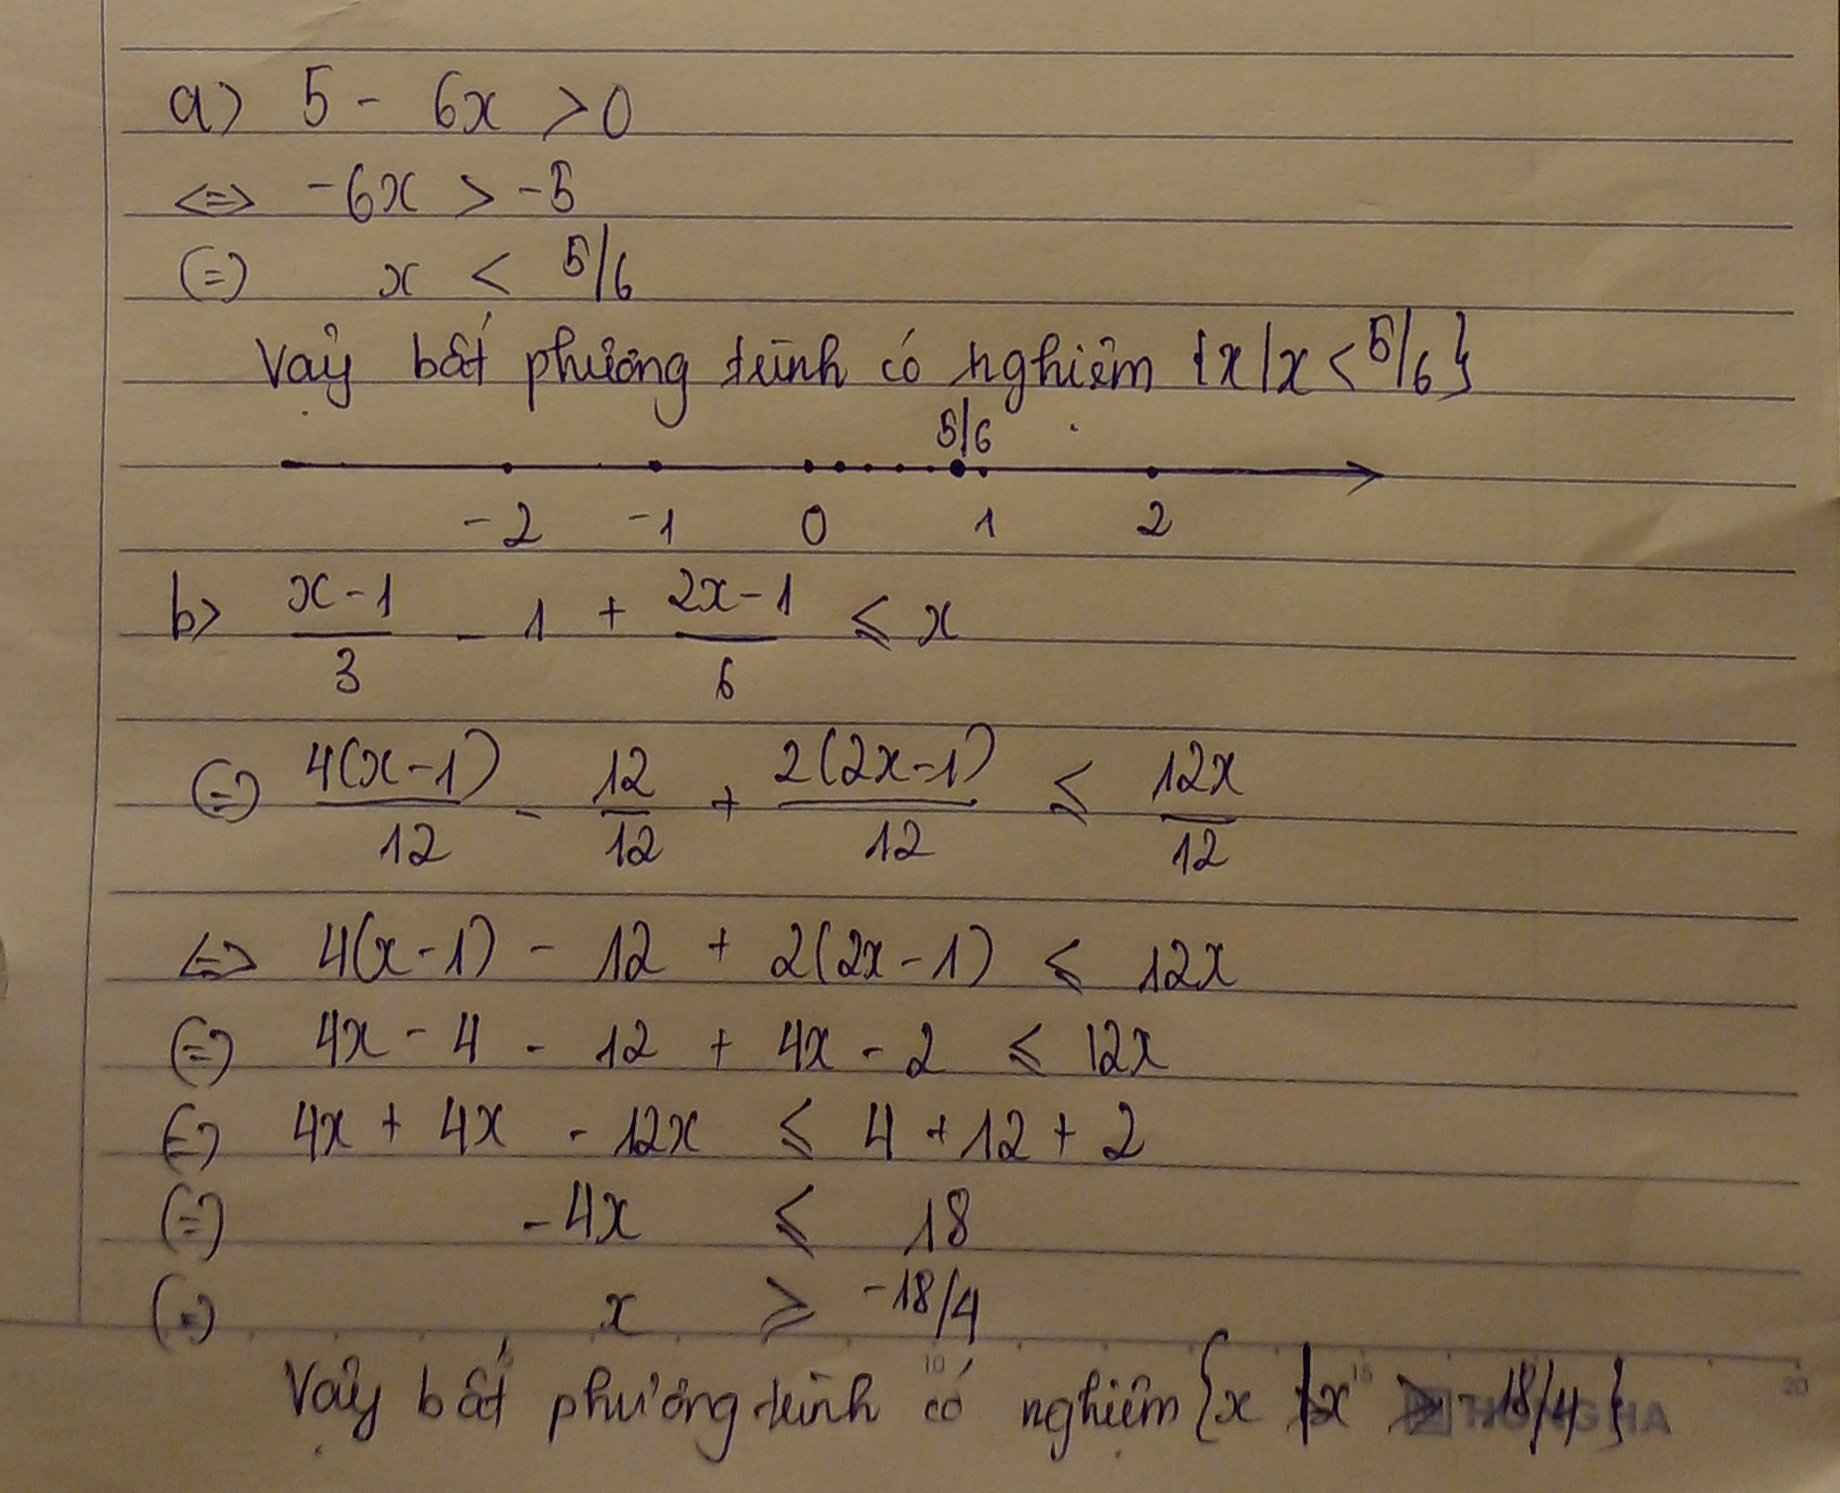 a) 5 - 6x > 0
<=> -6x > -5
(=) x < 5/6
Vậy bất phương trình có nghiệm {x/x < 5/6}
5/6
-2 -1 0 1 2
b) \frac{x-1}{3} - 1 + \frac{2x-1}{6} ≤ x
(=) \frac{4(x-1)}{12} - \frac{12}{12} + \frac{2(2x-1)}{12} ≤ \frac{12x}{12}
<=> 4(x-1) - 12 + 2(2x-1) ≤ 12x
(=) 4x - 4 - 12 + 4x - 2 ≤ 12x
(=) 4x + 4x - 12x ≤ 4 + 12 + 2
(=) -4x ≤ 18
(=) x ≥ -18/4
10 15 20
Vậy bất phương trình có nghiệm {x | x ≥ -18/4}
HONG HA